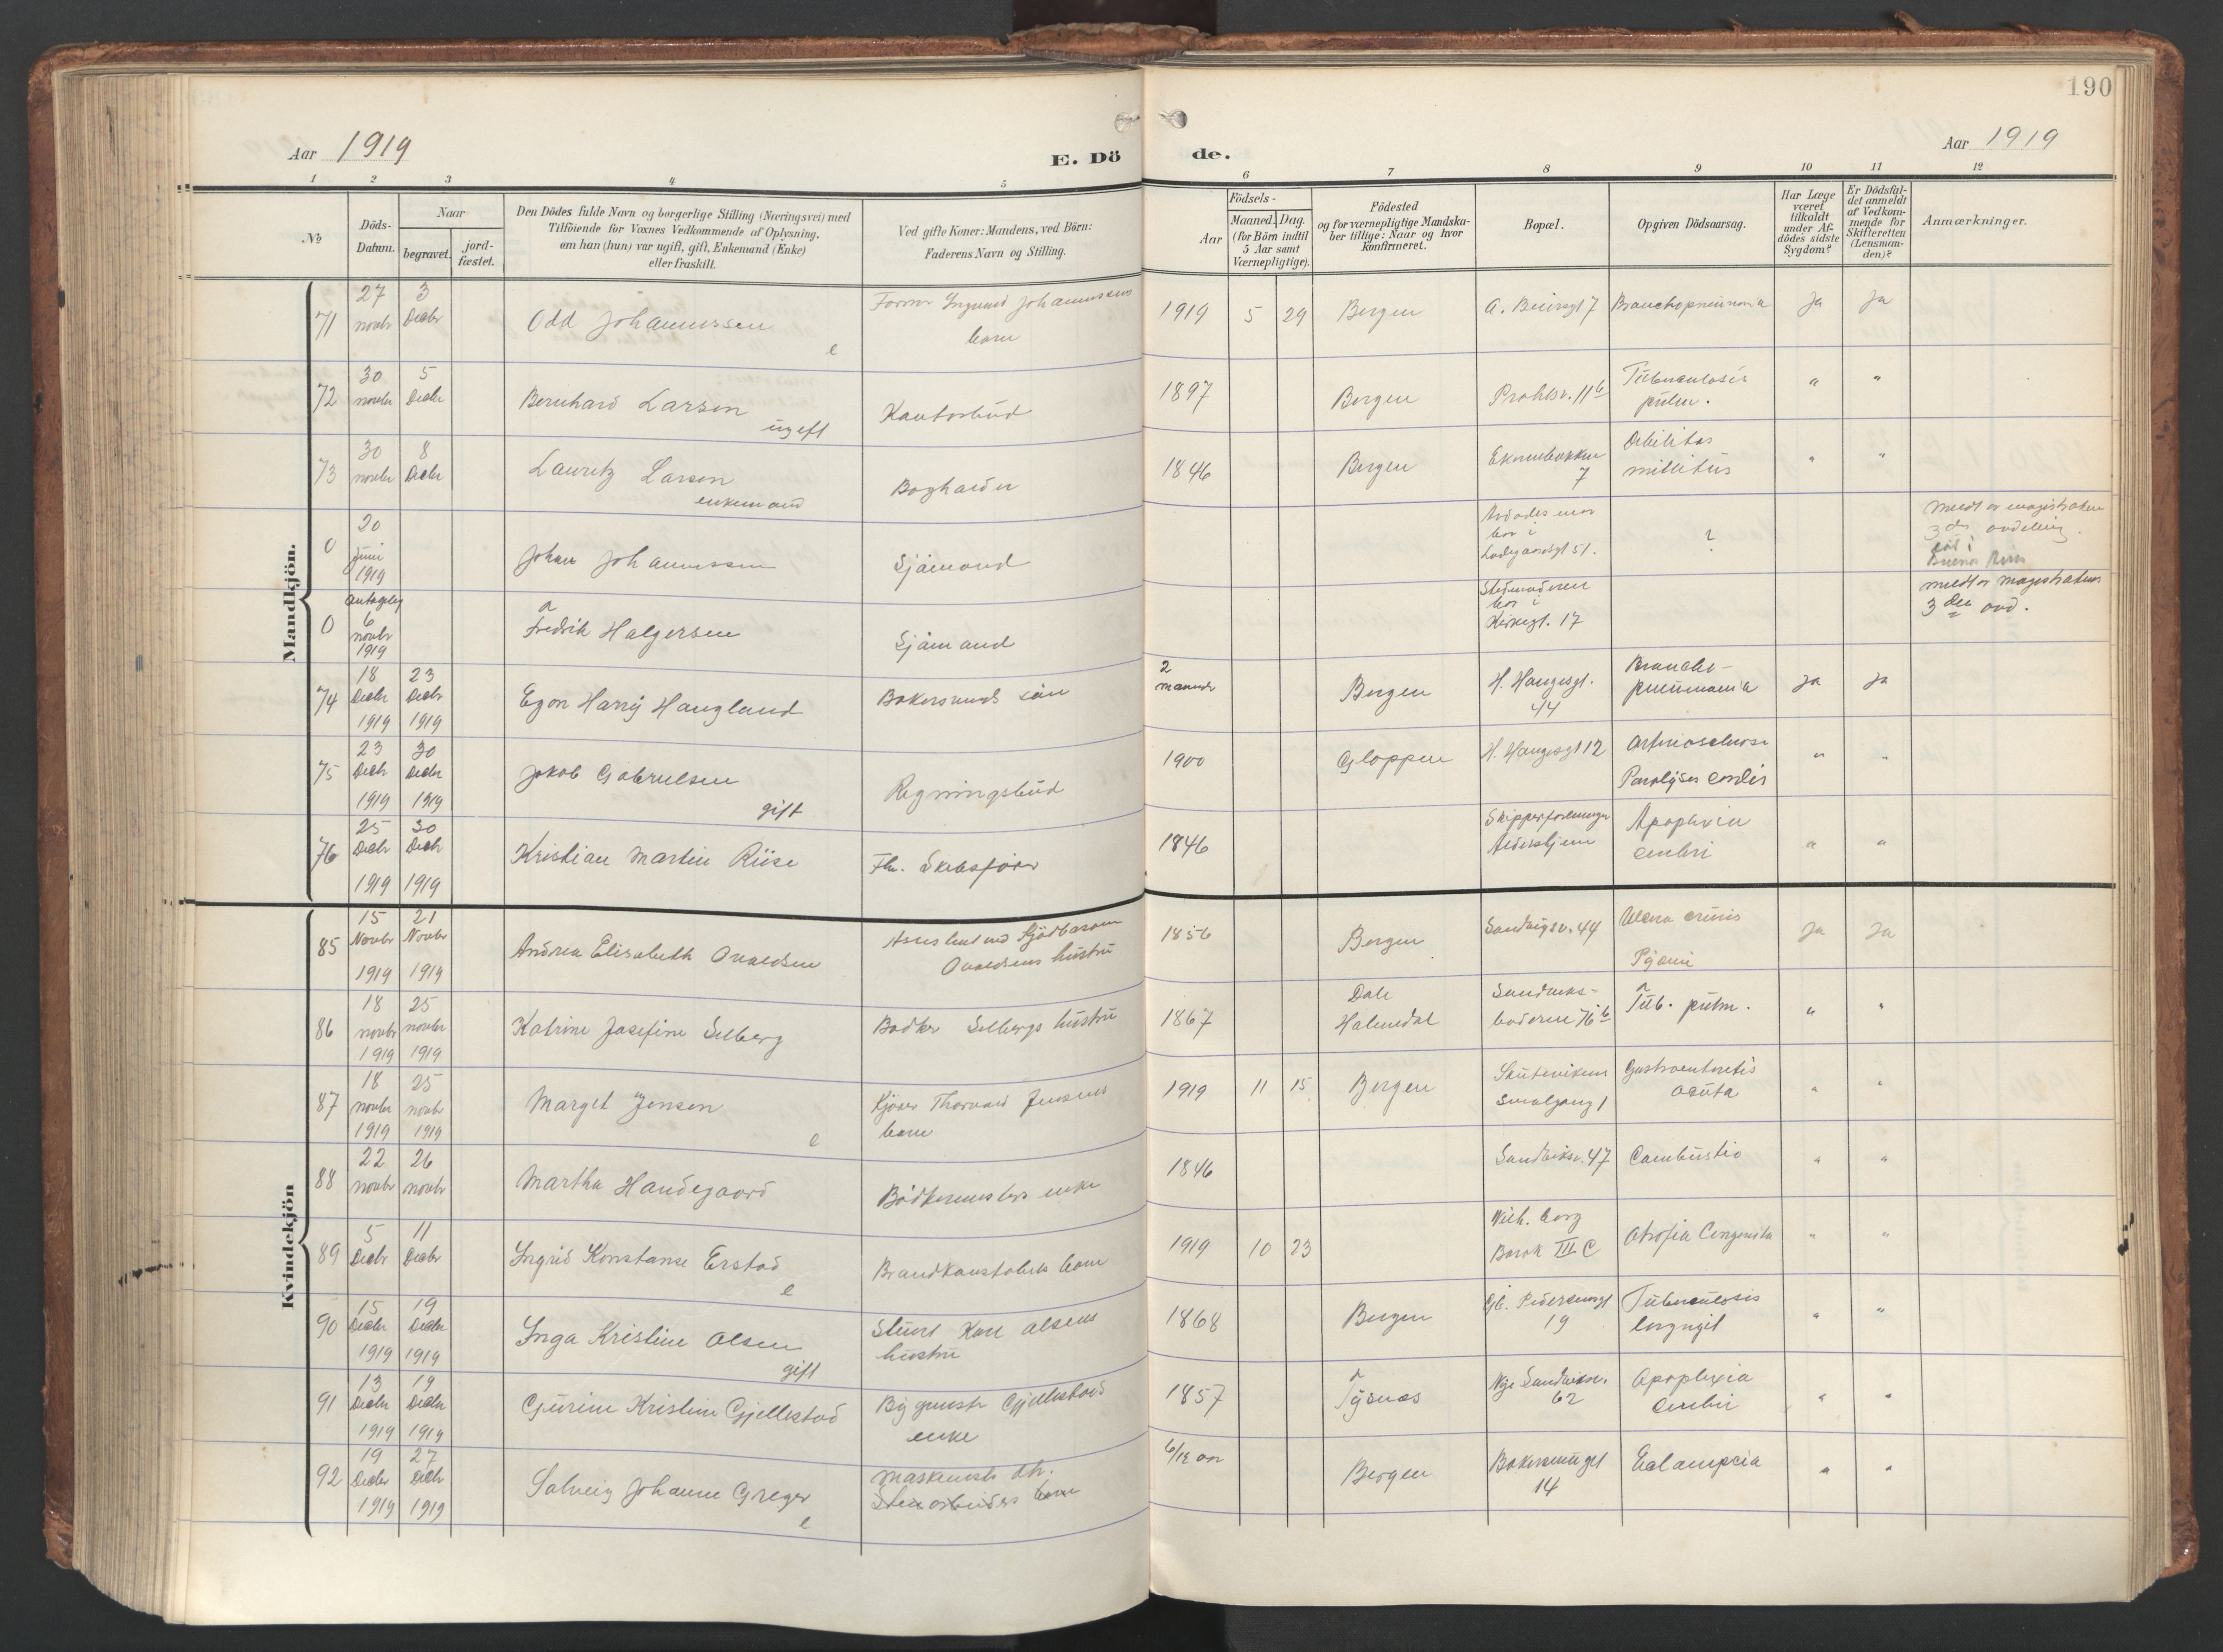 190
Aar 1919
E. Dö
de.
Aar 1919
1 2 3 4 5 6 7 8 9 10 11 12
№
Döds-
Datum.
Naar
begravet.
jord-
fæstet.
Den Dödes fulde Navn og borgerlige Stilling (Næringsvei) med
Tilföiende for Voxnes Vedkommende af Oplysning,
om han (hun) var ugift, gift, Enkemand (Enke)
eller fraskilt.
Ved gifte Koner: Mandens, ved Börn:
Faderens Navn og Stilling.
Födsels-
Aar
Maaned. Dag.
(for Börn indtil
5 Aar samt
Værnepligtige).
Födested
og for værnepligtige Mandska-
ber tillige: Naar og hvor
Konfirmeret.
Bopæl.
Opgiven Dödsaarsag.
Har Læge
været
tilkaldt
under Af-
dödes sidste
Sygdom?
Er Dödsfal-
det anmeldt
af Vedkom-
mende for
Skifteretten
(Lensman-
den)?
Anmærkninger.
Mandkjön.
71 27 novbr 3 Decbr Odd Johannessen e
Johannessens
barn
1919 5 29 Bergen Bronchopneumonia Ja Ja
72 30 novbr 5 Decbr Bernhard Larsen
ugift
Kontorbud
1897 Bergen 11b Tuberculosis
pulm. " "
73 30 novbr 8 Decbr Lauritz Larsen
enkemand
1846 Bergen 7 Debilitas
" "
0 20 Juni 1919 Johan Johannessen Sjömand
bor i
Ladegaardsgt 51. ?
meldt av magistraten
3die avdeling.
0 antagelig 6 novbr 1919 Fredrik Halgersen Sjömand
bor i
Kirkegt. 17
meldt av magistraten
3die avd.
74 18 Decbr 1919 23 Decbr 1919 Egon Harry Haugland sön
2
maaneder Bergen H. Haugesgt.
44 Broncho-
pneumonia Ja Ja
75 23 Decbr 1919 30 Decbr 1919 Jakob Gabrielsen
gift
Regningsbud
1900 Gloppen H. Haugesgt 12
Paralysis cordis " "
76 25 Decbr 1919 30 Decbr 1919 Kristian Martin Riise Fh. Skibsförer
1846 Skipperforeningens
Apoplexia
cerebri " "
Kvindekjön
85 15 Novbr 1919 21 Novbr 1919 Andrea Elisabeth Ovaldsen
Ovaldsens hustru
1856 Bergen Sandvigsv. 44 Ulcus cruris
Pyæmi Ja Ja
86 18 novbr 1919 25 novbr 1919 Katrine Josefine Selberg Bödker Selbergs hustru
1867 Dale
Sandviks-
boderne 76b Tub. pulm. " "
87 18 novbr 1919 25 novbr 1919 Margit Jensen e
Kjörer Thorvald Jensens
barn
1919 11 15 Bergen Skutevikens
Smalgang 1 Gastroenteritis
acuta " "
88 22 novbr 26 novbr Martha Handegaard Bödkermesters enke
1846 Sandviksv. 47 Combustio " "
89 5 Decbr 11 Decbr Ingrid Konstanse Erstad e
Brandkonstabels barn
1919 10 23 Wilh. borg
Barak III C Atrofia Congenita " "
90 15 Decbr 1919 19 Decbr 1919 Inga Kristine Olsen
gift
Karl Olsens
hustru
1868 Bergen
19 Tuberculosis
" "
91 13 Decbr 1919 19 Decbr 1919 Gurine Kristine Gjellestad
Bygmestr Gjellestads
enke
1857 Tysnes Nye Sandviksv.
62 Apoplexia
cerebri " "
92 19 Decbr 1919 27 Decbr 1919 Solveig Johanne Greger e
barn
6/12 aar Bergen
14 Eclampsia " "